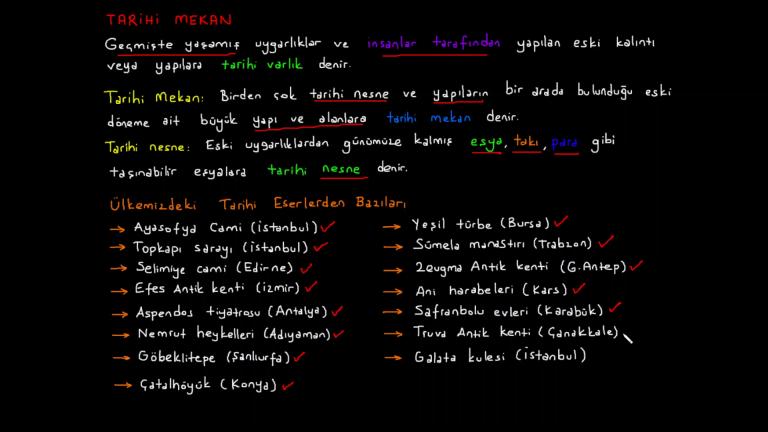 TARİHİ MEKAN
Geçmişte yaşamış uygarlıklar ve insanlar tarafından yapılan eski kalıntı
veya yapılara tarihi varlık denir.
Tarihi Mekan: Birden çok tarihi nesne ve yapıların bir arada bulunduğu eski
döneme ait büyük yapı ve alanlara tarihi mekan denir.
Tarihi nesne: Eski uygarlıklardan günümüze kalmış eşya, takı, para gibi
taşınabilir eşyalara tarihi nesne denir.
Ülkemizdeki Tarihi Eserlerden Bazıları
→ Ayasofya Cami (İstanbul) ✓
→ Topkapı sarayı (İstanbul) ✓
→ Selimiye cami (Edirne) ✓
→ Efes Antik kenti (İzmir) ✓
→ Aspendos tiyatrosu (Antalya) ✓
→ Nemrut heykelleri (Adıyaman) ✓
→ Göbeklitepe (Şanlıurfa) ✓
→ Çatalhöyük (Konya) ✓
→ Yeşil türbe (Bursa) ✓
→ Sümela manastırı (Trabzon) ✓
→ Zeugma Antik kenti (G.Antep) ✓
→ Ani harabeleri (Kars) ✓
→ Safranbolu evleri (Karabük) ✓
→ Truva Antik kenti (Çanakkale)
→ Galata kulesi (İstanbul)